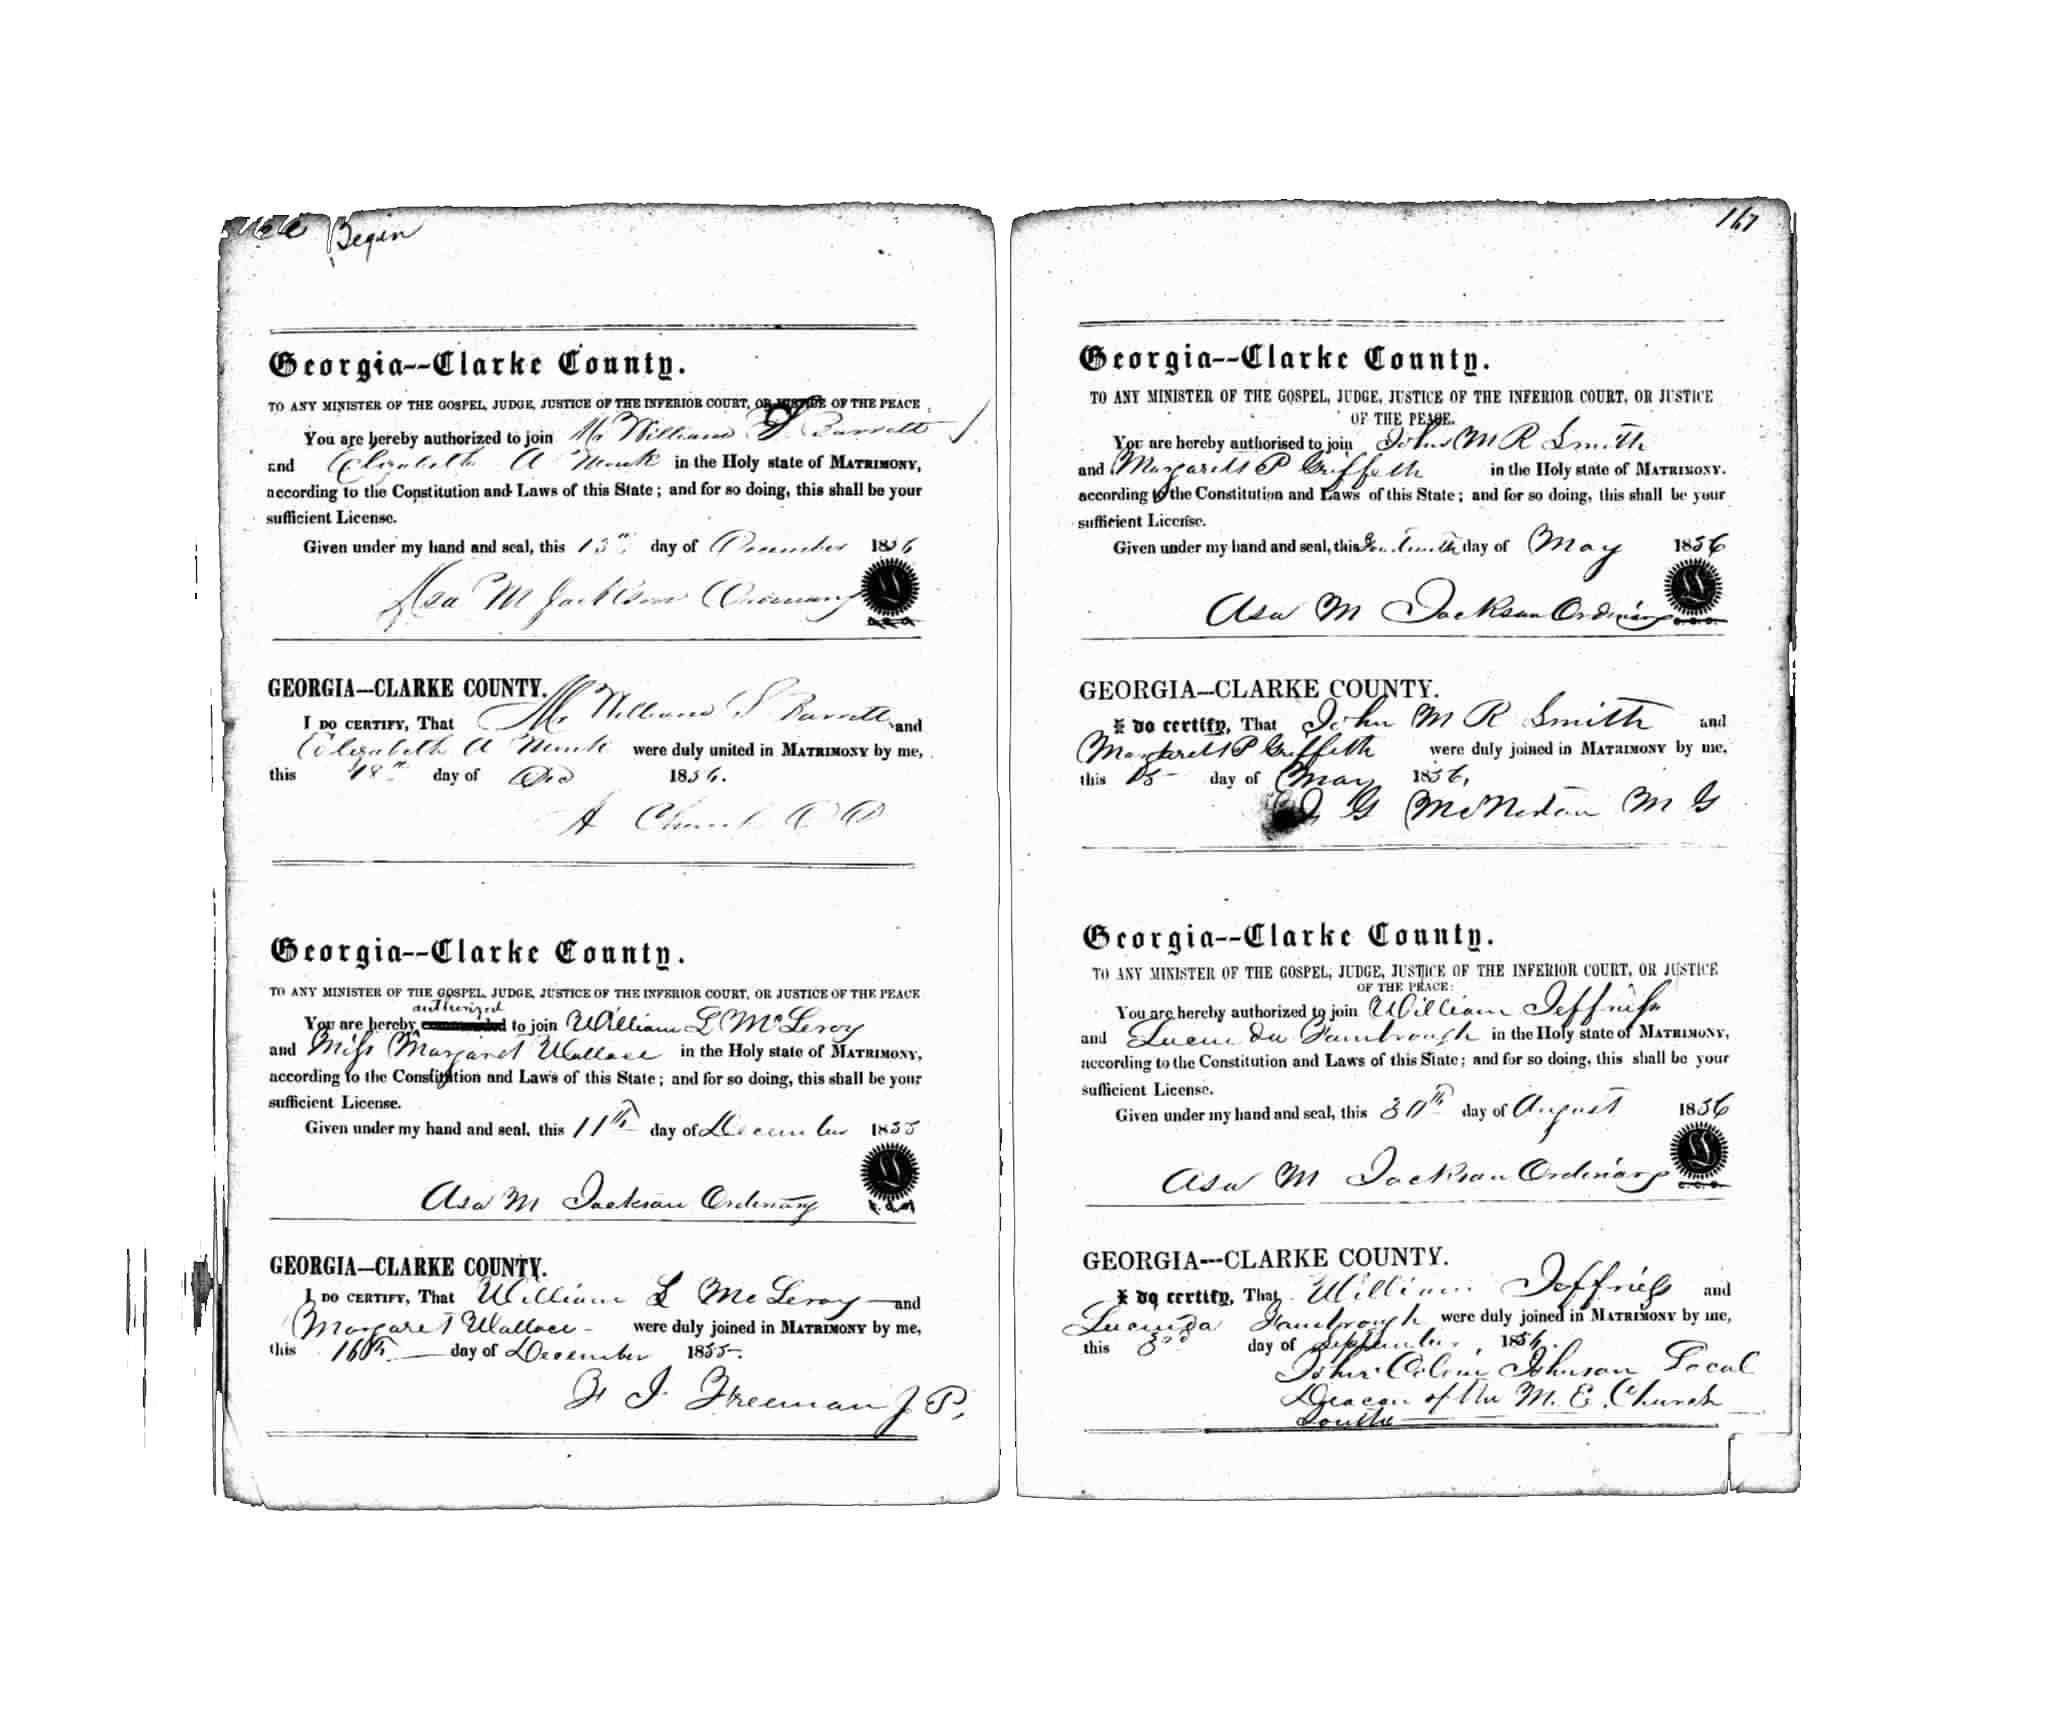 166 Begin
Georgia--Clarke County.
TO ANY MINISTER OF THE GOSPEL, JUDGE, JUSTICE OF THE INFERIOR COURT, OR JUSTICE OF THE PEACE
You are hereby authorized to join Mr William S Barrett
and Elizabeth A in the Holy state of MATRIMONY,
according to the Constitution and Laws of this State; and for so doing, this shall be your
sufficient License.
Given under my hand and seal, this 13th day of December 1856
Asa M Jackson Ordinary
GEORGIA—CLARKE COUNTY.
I DO CERTIFY, That Mr William S Barrett and
Elizabeth A were duly united in MATRIMONY by me,
this day of Dec 1856.
A Church
Georgia--Clarke County.
TO ANY MINISTER OF THE GOSPEL, JUDGE, JUSTICE OF THE INFERIOR COURT, OR JUSTICE OF THE PEACE
authorized
You are hereby to join William L McLeroy
and Miss Margaret Wallace in the Holy state of MATRIMONY,
according to the Constitution and Laws of this State; and for so doing, this shall be your
sufficient License.
Given under my hand and seal, this 11th day of December 1855
Asa M Jackson Ordinary
GEORGIA—CLARKE COUNTY.
I DO CERTIFY, That William L McLeroy and
Margaret Wallace were duly joined in MATRIMONY by me,
this 16th day of December 1855.
F J Freeman J P.
167
Georgia--Clarke County.
TO ANY MINISTER OF THE GOSPEL, JUDGE, JUSTICE OF THE INFERIOR COURT, OR JUSTICE
OF THE PEACE.
You are hereby authorised to join John M R Smith
and Margarett P Griffeth in the Holy state of MATRIMONY.
according to the Constitution and Laws of this State; and for so doing, this shall be your
sufficient License.
Given under my hand and seal, this day of May 1856
Asa M Jackson Ordinary
GEORGIA—CLARKE COUNTY.
I do certify, That John M R Smith and
Margarett P Griffeth were duly joined in MATRIMONY by me,
this 15 day of May 1856,
G M G
Georgia--Clarke County.
TO ANY MINISTER OF THE GOSPEL, JUDGE, JUSTICE OF THE INFERIOR COURT, OR JUSTICE
OF THE PEACE:
You are hereby authorized to join William Jeffriess
and Lucinda Fambrough in the Holy state of MATRIMONY,
according to the Constitution and Laws of this State; and for so doing, this shall be your
sufficient License.
Given under my hand and seal, this 30th day of August 1856
Asa M Jackson Ordinary
GEORGIA---CLARKE COUNTY.
I do certify, That William Jeffriess and
Lucinda Fambrough were duly joined in MATRIMONY by me,
this 3rd day of September, 1856.
John Calvin Johnson Local
Deacon of the M. E. Church
South